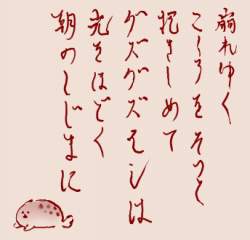 崩れゆく
こころをそっと
抱きしめて
グズグズモンは
光をほどく
朝のしじまに